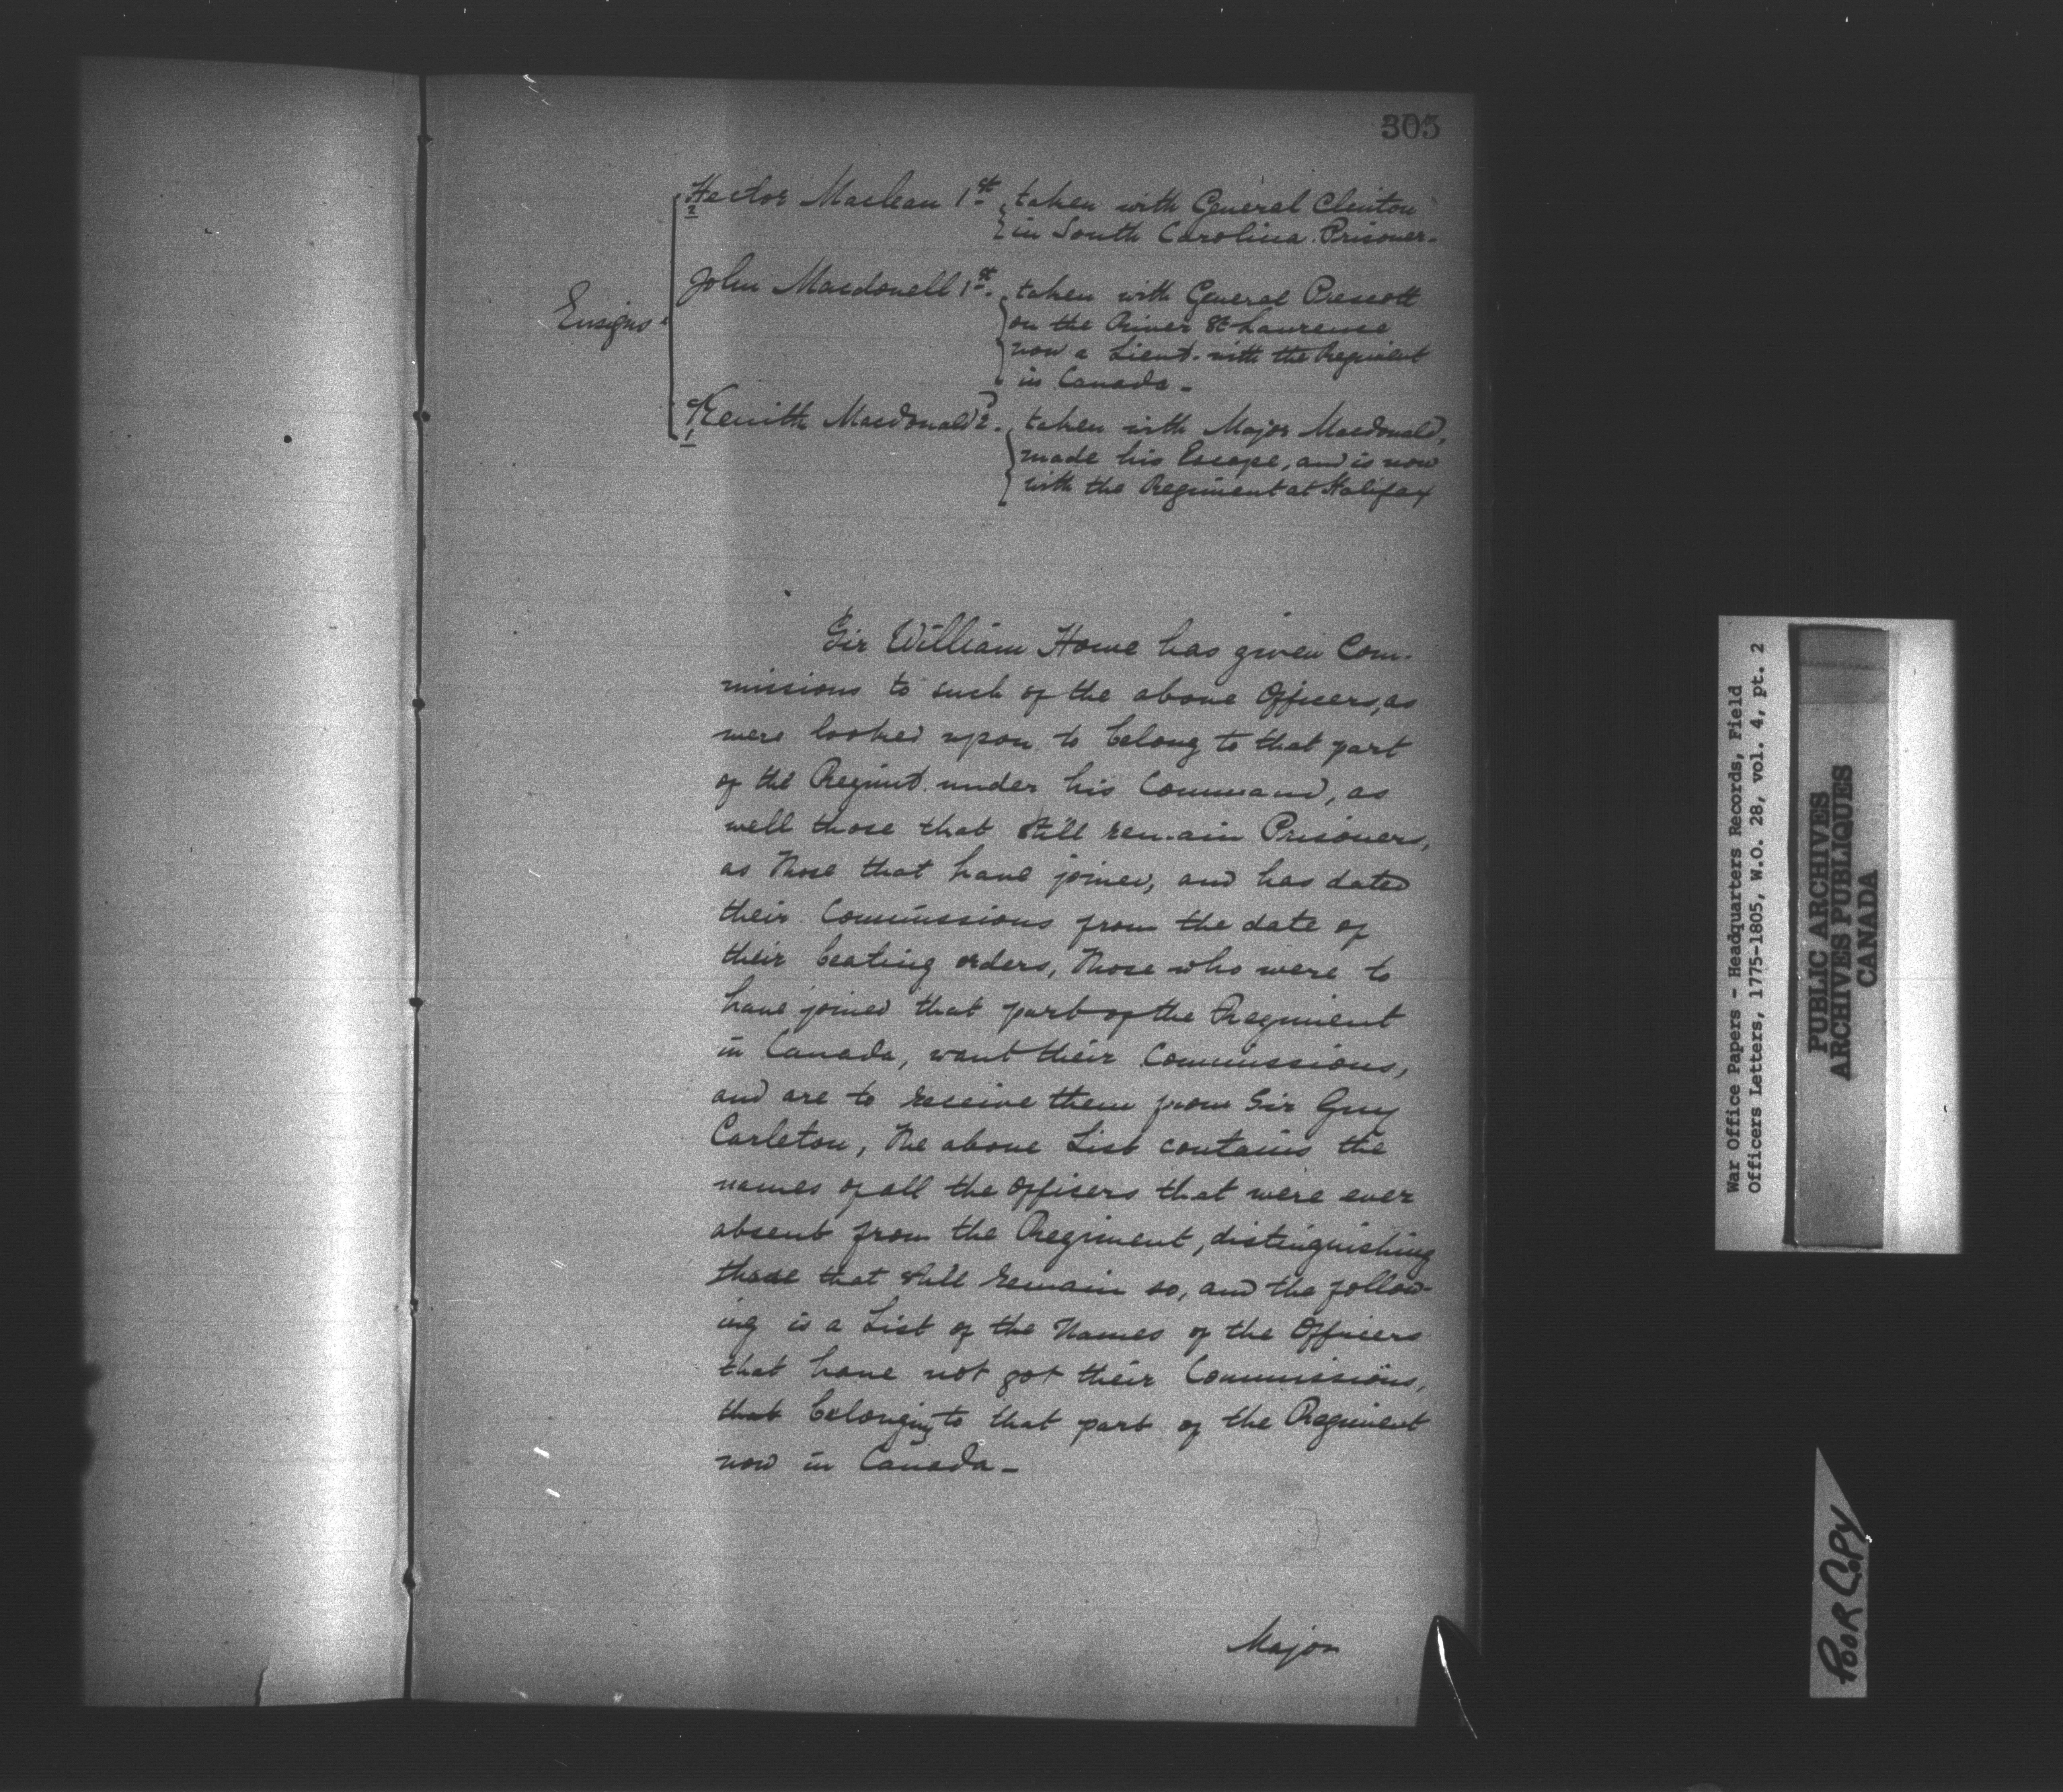 305
Hector Maclean 1st taken with General Clinton
2 in South Carolina. Prisoner.
John Macdonell 1st. taken with General Prescott
on the River St Laurense
Ensigns
now a Lieut. with the Regiment
in Canada -
Kenith Macdonald 2d. taken with Major Macdonald,
1 made his Escape, and is now
with the Regiment at Halifax
Sir William Howe has given Com-
missions to such of the above Officers, as
were looked upon to belong to that part
of the Regimt. under his Command, as
well those that still remain Prisoners,
as those that have joined, and has dated
their Commissions from the date of
their beating orders, Those who were to
have joined that part of the Regiment
in Canada, want their Commissions,
and are to receive them from Sir Guy
Carleton, The above List contains the
names of all the Officers that were ever
absent from the Regiment, distinguishing
those that still remain so, and the follow-
ing is a List of the Names of the Officers
that have not got their Commissions,
that belonging to that part of the Regiment
now in Canada -
Major
War Office Papers - Headquarters Records, Field
Officers Letters, 1775-1805, W.O. 28, vol. 4, pt. 2
PUBLIC ARCHIVES
ARCHIVES PUBLIQUES
CANADA
POOR COPY